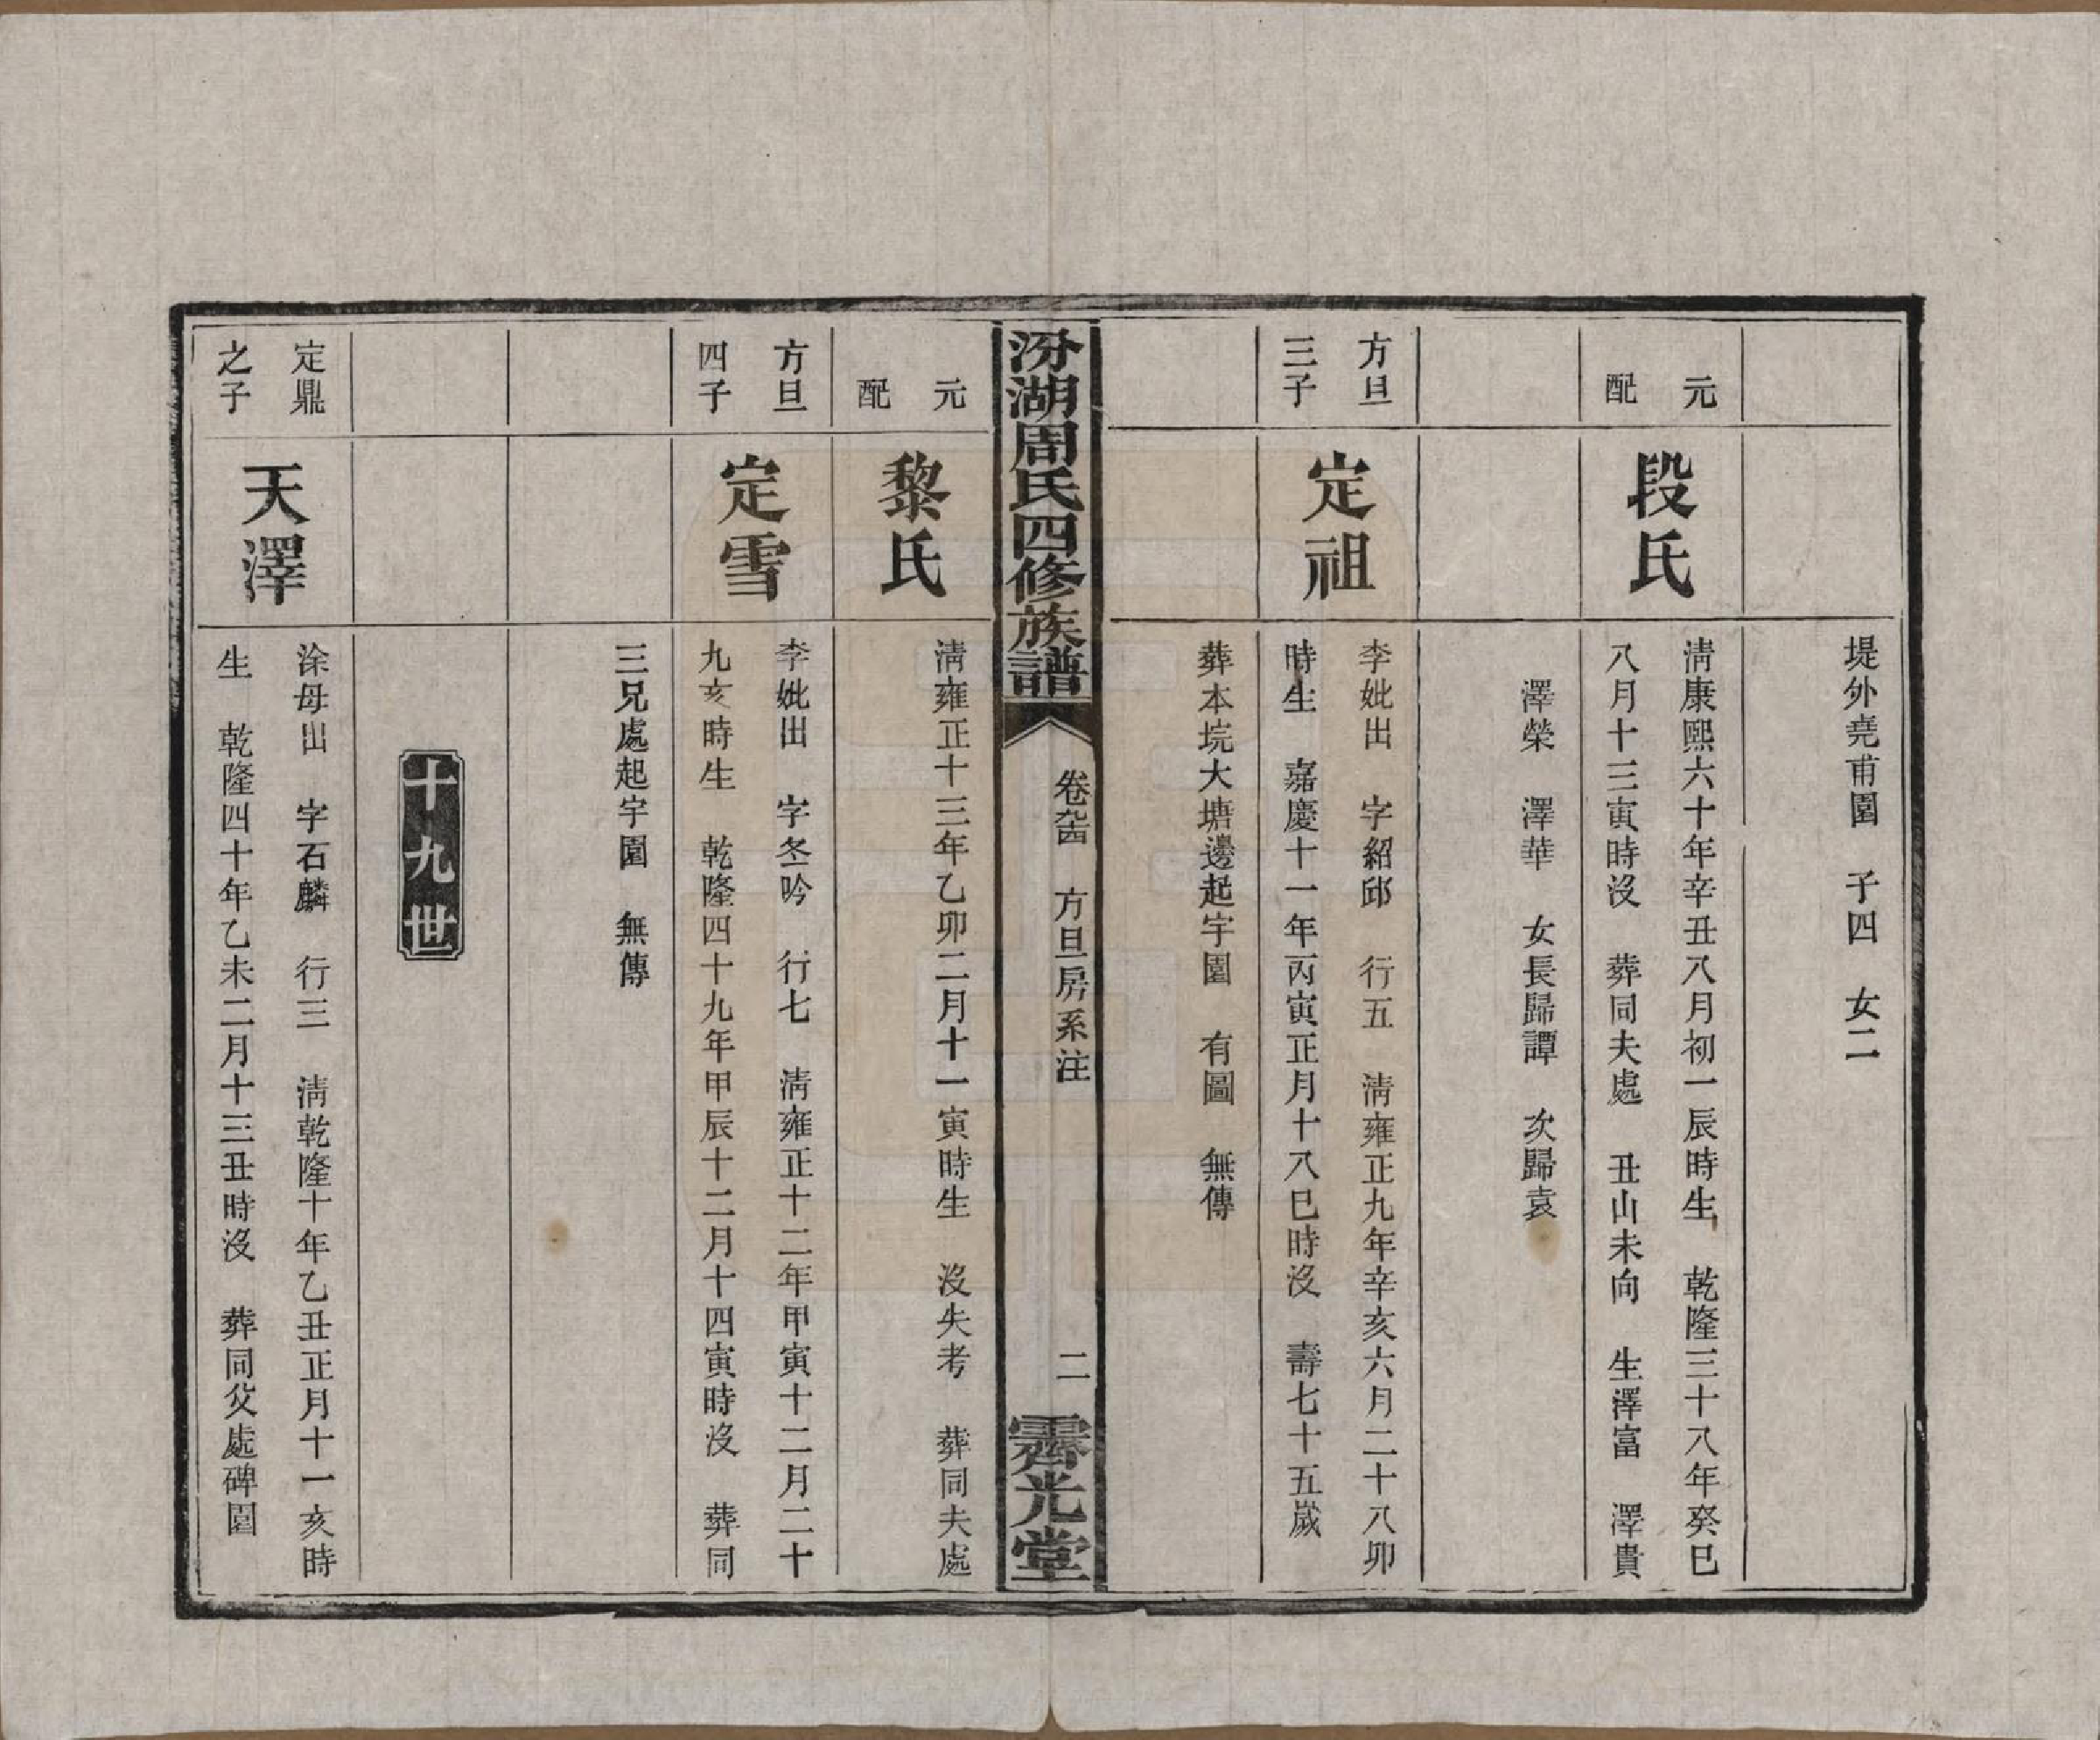 堤外堯甫園　子四　女二
元
配
段氏
淸康熙六十年辛丑八月初一辰時生　乾隆三十八年癸巳
八月十三寅時沒　葬同夫處　丑山未向　生澤富　澤貴
澤榮　澤華　女長歸譚　次歸袁
方旦
三子
定祖
李妣出　字紹邱　行五　淸雍正九年辛亥六月二十八卯
時生　嘉慶十一年丙寅正月十八巳時沒　壽七十五歲
葬本垸大塘邊起宇園　有圖　無傳
汾湖周氏四修族譜
方旦房系注
二
霽光堂
元
配
黎氏
淸雍正十三年乙卯二月十一寅時生　沒失考　葬同夫處
方旦
四子
定雪
李妣出　字冬吟　行七　淸雍正十二年甲寅十二月二十
九亥時生　乾隆四十九年甲辰十二月十四寅時沒　葬同
三兄處起宇園　無傳
十九世
定鼎
之子
天澤
涂母出　字石麟　行三　淸乾隆十年乙丑正月十一亥時
生　乾隆四十年乙未二月十三丑時沒　葬同父處碑園